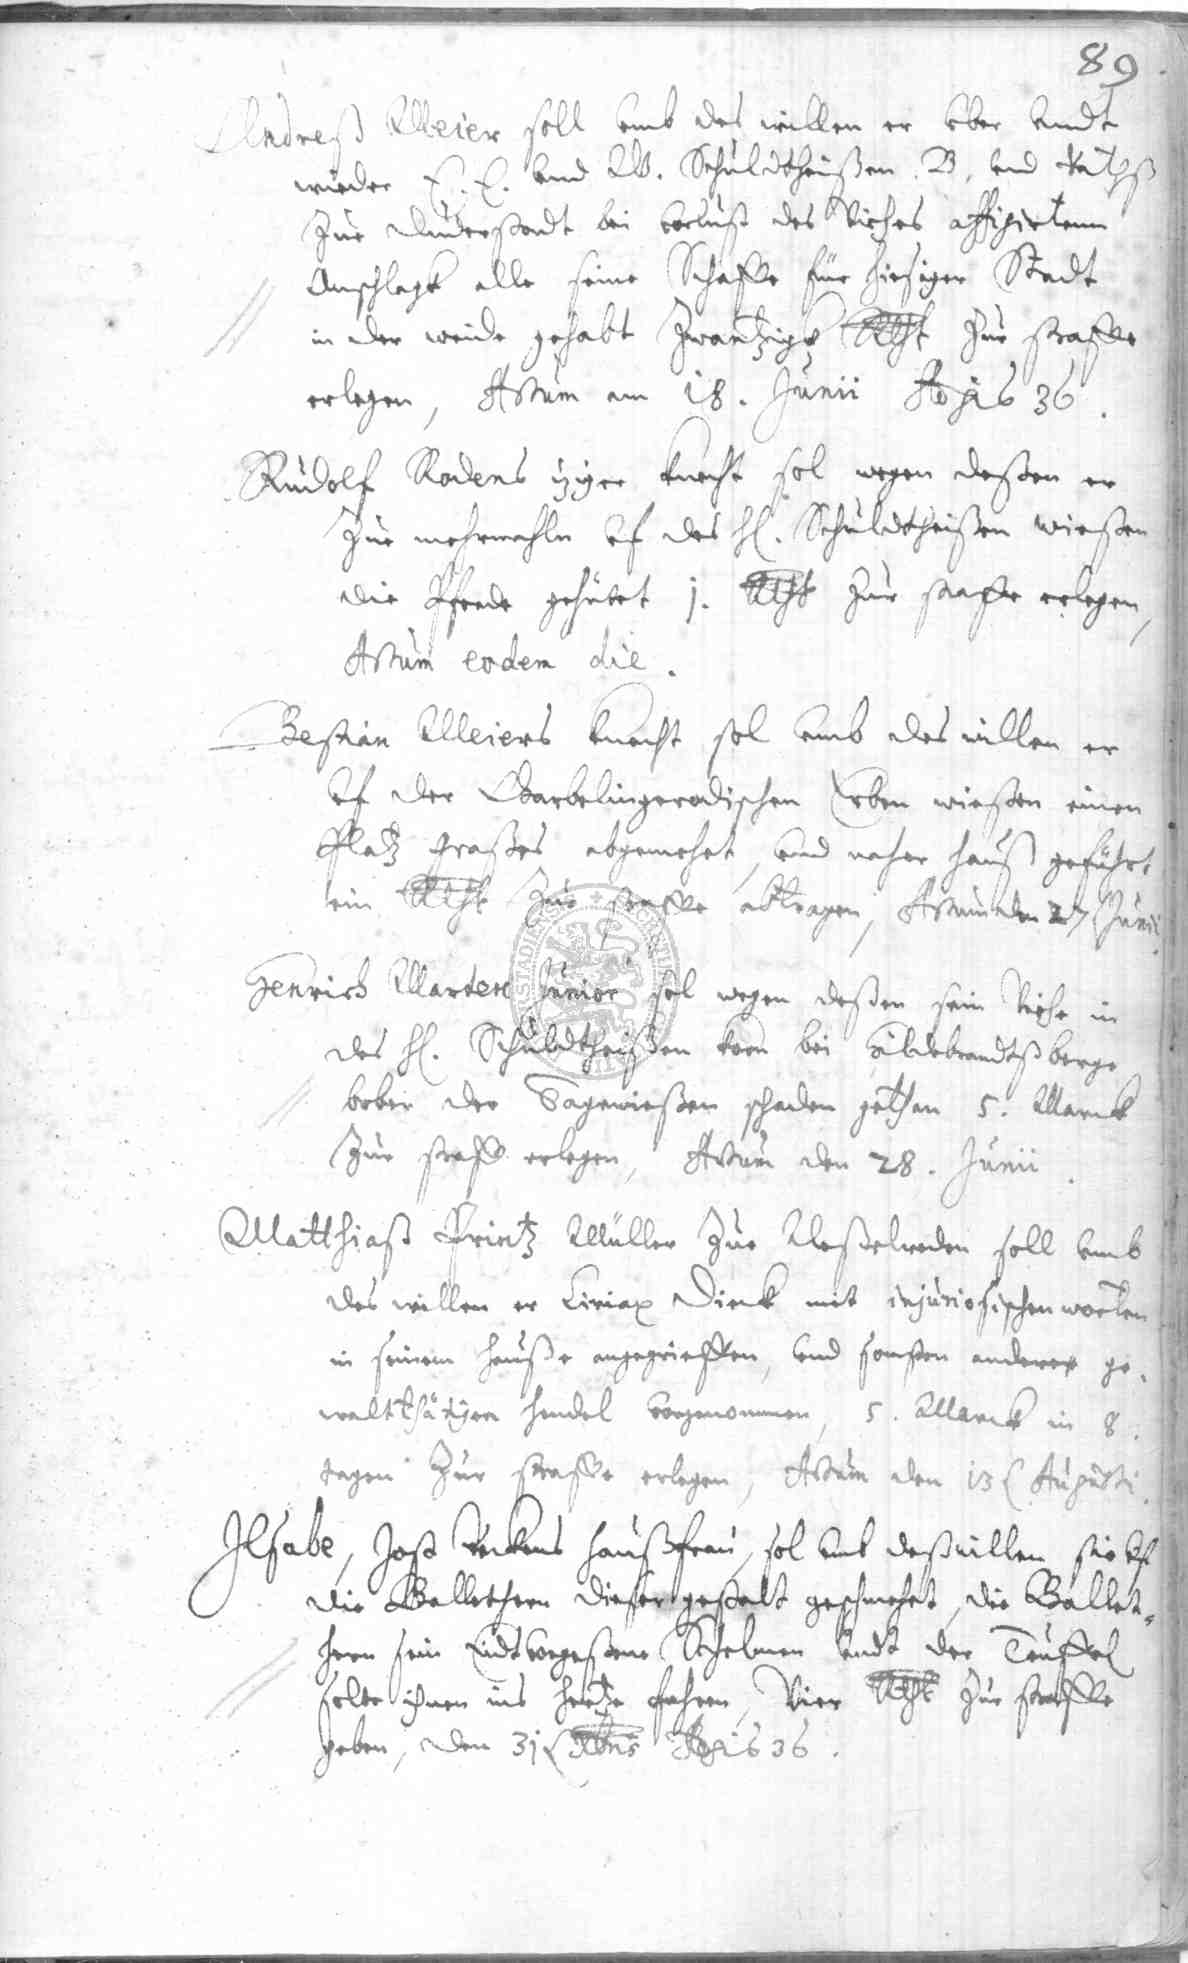 89
Andreß Meier soll umb des willen er uber undt
wieder E. E. und W. Schuldtheißen B. und Rathß
zue Duderstadt bei verlust des Viehes affigirtenn
Anschlagk alle seine Schaffe für hiesiger Stadt
in der weide gehabt zwantzigk Rthlr zur straffe
erlegen, Actum am 18. Junii Ao 1636.
Rudolf Rodens knecht sol wegen deßen er
zue mehrmahln uf des H. Schuldtheißen wießen
die Pferde gehütet 1. Rthlr zur straffe erlegen,
Actum eodem die.
Bestian Meiers knecht sol umb des willen er
uf der Barbelingerodischen Erben wießen einen
Platz Graßes abgemehet, und naher hauß geführt
ein Rthlr zur straffe abtragen, Actum den 27 Junii
Henrich Marten Junior sol wegen deßen sein Viehe in
des H. Schuldtheißen korn bei Hildebrandtßberge
der schaden gethan 5. Marck
zur straff erlegen, Actum den 28. Junii.
Matthiaß Printz Müller zue Neßelreden soll umb
des willen er Ciriax Dirck mit injuriosischen worten
in seinem hauße angegrieffen, und sonsten andere ge-
waltthätige hendel vorgenommen, 5. Marck in 8.
tagen zur straffe erlegen, Actum den 13 Augusti.
Ilsabe, Jost haußfrau, sol umb deßwillen sie uf
die Wallethern dieser gestalt geschmehet, die Wallet-
hern sein Eidtvergeßene Schelmen undt der Teuffel
solte ihnen ins hertze fahren, Vier Rthlr zur straffe
geben, den 31 Xbris Ao 1636.